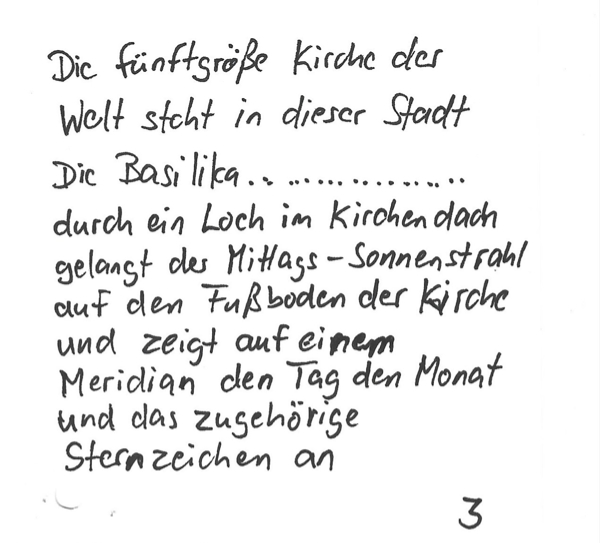 Die fünftgröße Kirche der
Welt steht in dieser Stadt
Die Basilika..................
durch ein Loch im Kirchendach
gelangt der Mittags-Sonnenstrahl
auf den Fußboden der Kirche
und zeigt auf einem
Meridian den Tag den Monat
und das zugehörige
Sternzeichen an
3